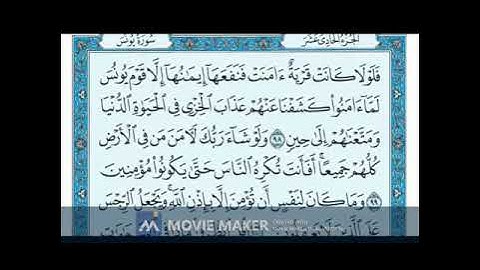 الجزء الحادي عشر
سورة يونس
فَلَوْلَا كَانَتْ قَرْيَةٌ ءَامَنَتْ فَنَفَعَهَآ إِيمَٰنُهَآ إِلَّا قَوْمَ يُونُسَ
لَمَّآ ءَامَنُوا۟ كَشَفْنَا عَنْهُمْ عَذَابَ ٱلْخِزْىِ فِى ٱلْحَيَوٰةِ ٱلدُّنْيَا
وَمَتَّعْنَٰهُمْ إِلَىٰ حِينٍ ٩٨ وَلَوْ شَآءَ رَبُّكَ لَءَامَنَ مَن فِى ٱلْأَرْضِ
كُلُّهُمْ جَمِيعًا أَفَأَنتَ تُكْرِهُ ٱلنَّاسَ حَتَّىٰ يَكُونُوا۟ مُؤْمِنِينَ
٩٩ وَمَا كَانَ لِنَفْسٍ أَن تُؤْمِنَ إِلَّا بِإِذْنِ ٱللَّهِ وَيَجْعَلُ ٱلرِّجْسَ
MOVIE MAKER